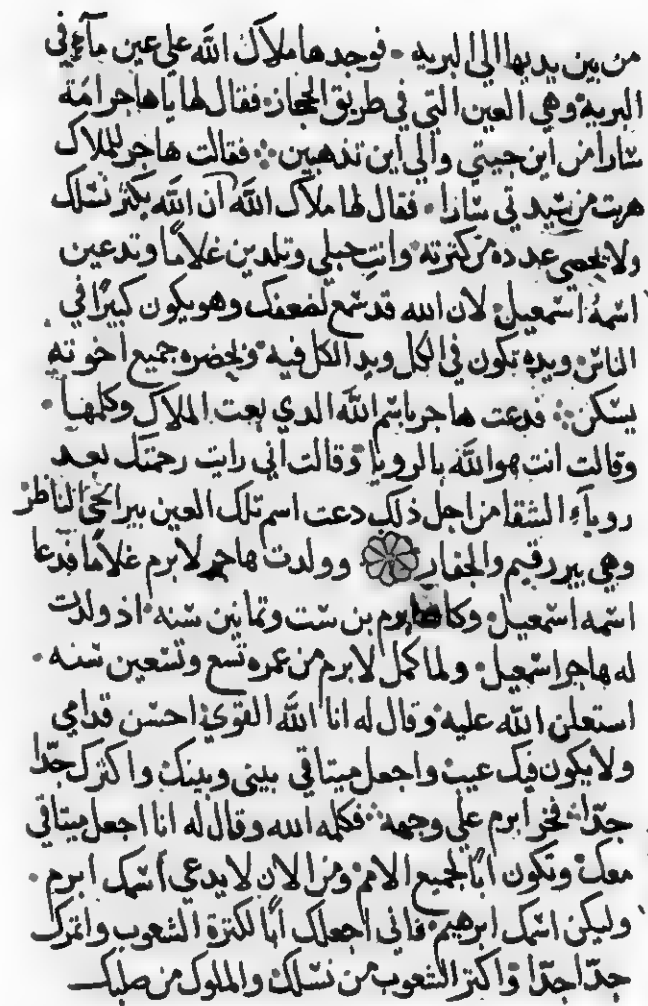 من بين يديها الي البريه · فوجدها ملاك الله علي عين مآء في
البرية وهي العين التي في طريق الحجاز · فقال لها يا هاجر امة
سارا من اين جيتي والي اين تذهبين ⁘ فقالت هاجر للملاك
هربت من سيدتي سارا · فقال لها ملاك الله ان الله يكثر نسلك
ولا يحصي عدده من كترته · وانتِ حبلي وتلدين غلامًا وتدعين
اسمه اسمعيل · لان الله قد سمع لضعفك وهو يكون كبيرًا في
الناس · ويده تكون في الكل ويد الكل فيه · وبحضره جميع اخوته
يسكن ⁘ فدعت هاجر باسم الله الدي بعت الملاك وكلمها ·
وقالت انت هو الله بالرويا · وقالت اني رايت رحمتك بعد
روياء الشقا من اجل ذلك دعت اسم تلك العين بير الحي الناظر
وهي بير رقيم والجفار وولدت هاجر لابرم غلامًا فدعا
اسمه اسمعيل · وكان ابرم بن ست وتمانين سنه · اذ ولدت
له هاجر اسمعيل · ولما كمل لابرم من عمره تسع وتسعين سنه ·
استعلن الله عليه · وقال له انا الله القوي · احسن قدامي
ولا يكون فيك عيب واجعل ميتاقي بيني وبينك واكثرك جدًا
جدًا · فخر ابرم علي وجهه ⁘ فكلمه الله وقال له انا اجعل ميتاقي
معك · وتكون ابًا لجميع الامم · ومن الان لا يدعي اسمك ابرم ·
وليكن اسمك ابرهيم · فاني اجعلك ابًا لكترة الشعوب واتمرك
جدًا جدًا واكتر الشعوب من نسلك · والملوك من صلبك